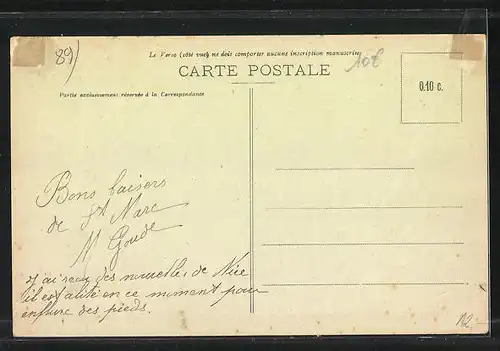 89)
Le Verso (côté vue) ne doit comporter aucune inscription manuscrite
10€
CARTE POSTALE
Partie exclusivement réservée à la Correspondance
0.10 c.
Bons baisers
de St Marc
M Goude
J'ai reçu des nouvelles de Nice
il est alité en ce moment pour
enflure des pieds.
12-